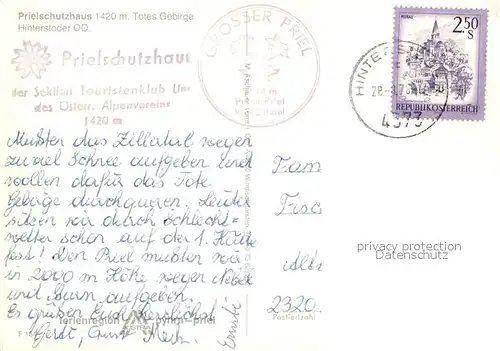 Prielschutzhaus 1420 m. Totes Gebirge
Hinterstoder OÖ.
Prielschutzhaus
der Sektion Touristenklub
des Österr. Alpenvereins
1420 m
GROSSER PRIEL
MURAU
2.50
S
REPUBLIK ÖSTERREICH
4573
Mußten das Zillertal wegen
zuviel Schnee aufgeben und
wollen dafür das Tote
Gebirge durchqueren. Leider
sitzen wir durch Schlecht=
wetter schon auf der 1. Hütte
fest! Den Priel mußten wir
in 2000 m Höhe wegen Nebel
und Sturm aufgeben.
Es grüßen Euch herzlichst
Gerti,
Fam
2320
Postleitzahl
ferienregion pyhrn-priel
privacy protection
Datenschutz